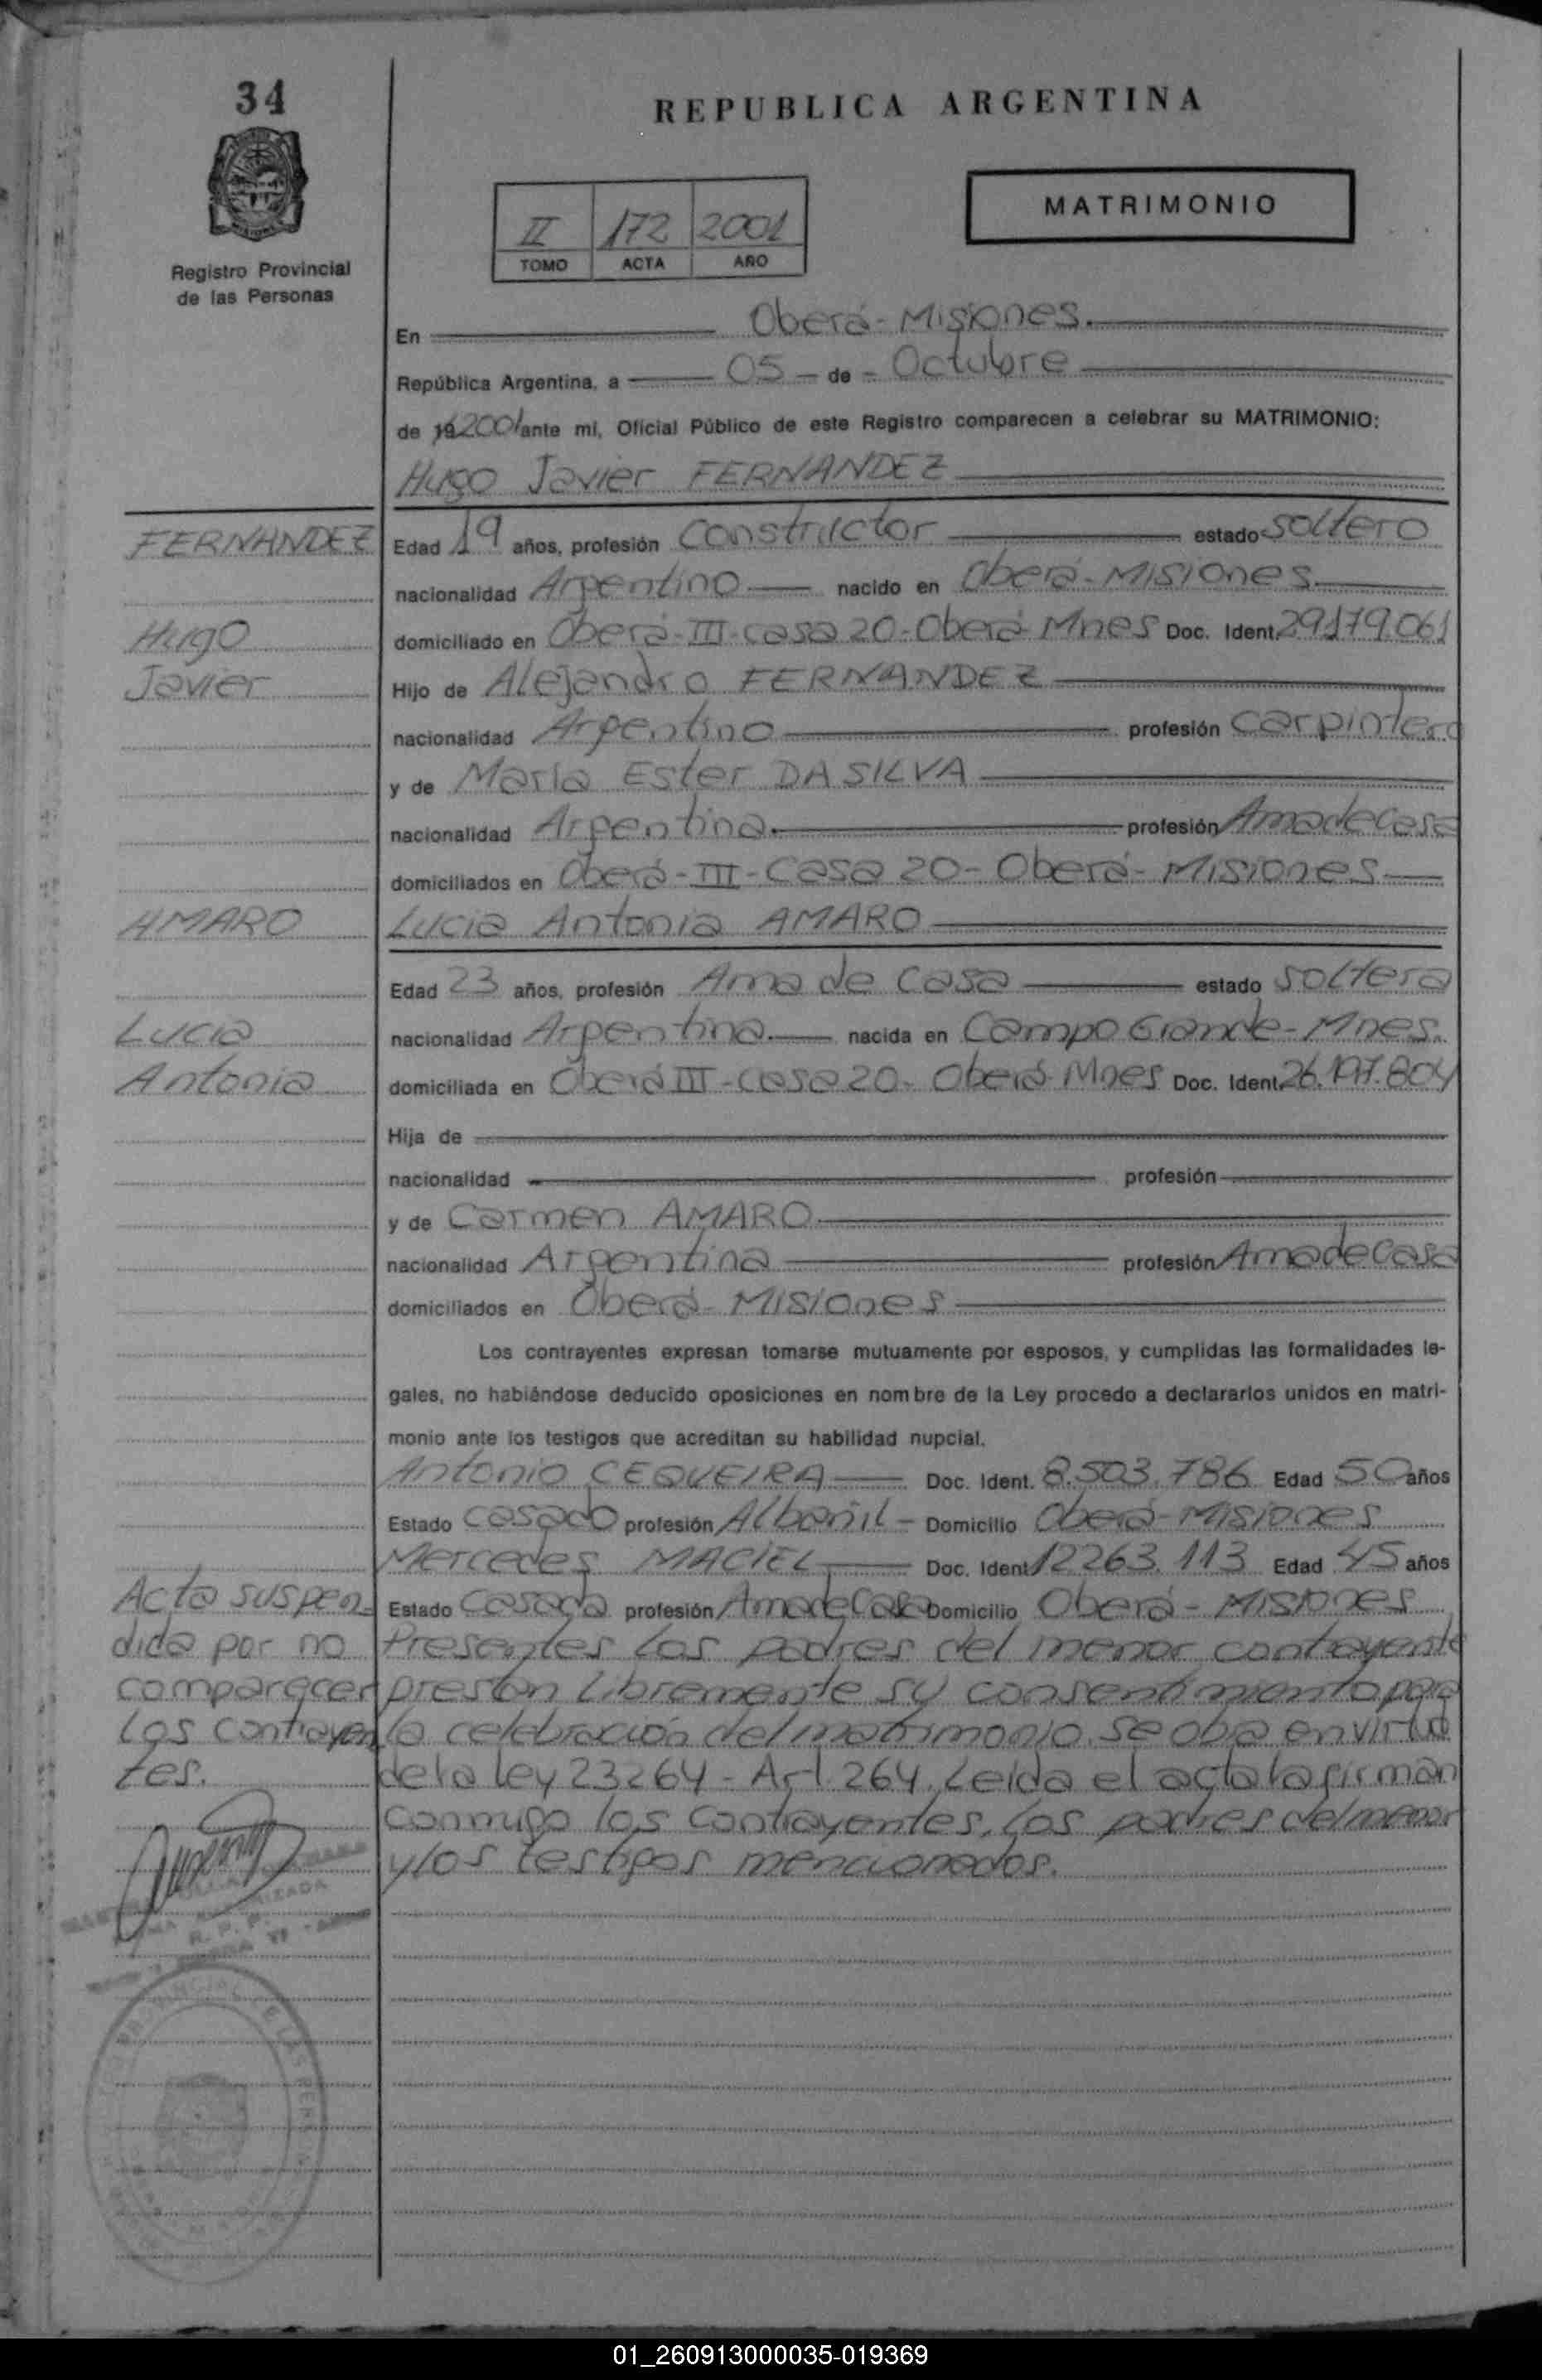 34
REPUBLICA ARGENTINA
MATRIMONIO
II 172 2001
TOMO ACTA AÑO
Registro Provincial
de las Personas
En Oberá - Misiones.
República Argentina, a 05 - de - Octubre
de 19 2001 ante mí, Oficial Público de este Registro comparecen a celebrar su MATRIMONIO:
Hugo Javier FERNANDEZ
FERNANDEZ Edad 19 años, profesión Constructor estado soltero
nacionalidad Argentino nacido en Oberá - Misiones
Hugo domiciliado en Oberá - III - casa 20 - Oberá Mnes Doc. Ident. 29.179.061
Javier Hijo de Alejandro FERNANDEZ
nacionalidad Argentino profesión Carpintero
y de María Ester DA SILVA
nacionalidad Argentina. profesión Ama de Casa
domiciliados en Oberá - III - Casa 20 - Oberá - Misiones
AMARO Lucia Antonia AMARO
Edad 23 años, profesión Ama de Casa estado soltera
Lucia nacionalidad Argentina. nacida en Campo Grande - Mnes.
Antonia domiciliada en Oberá III - casa 20 - Oberá Mnes Doc. Ident. 26.197.804
Hija de
nacionalidad profesión
y de Carmen AMARO
nacionalidad Argentina profesión Ama de Casa
domiciliados en Oberá - Misiones
Los contrayentes expresan tomarse mutuamente por esposos, y cumplidas las formalidades le-
gales, no habiéndose deducido oposiciones en nombre de la Ley procedo a declararlos unidos en matri-
monio ante los testigos que acreditan su habilidad nupcial.
Antonio CEQUEIRA Doc. Ident. 8.503.786 Edad 50 años
Estado casado profesión Albañil - Domicilio Oberá - Misiones
Mercedes MACIEL Doc. Ident. 12263.113 Edad 45 años
Acta suspen- Estado Casada profesión Ama de Casa Domicilio Oberá - Misiones
dida por no Presentes los padres del menor contrayente
comparecer prestan libremente su consentimiento para
los contrayen la celebración del matrimonio. Se obra en virtud
tes. de la ley 23264 - Art. 264. Leída el acta la firman
conmigo los contrayentes, los padres del menor
y los testigos mencionados.
R. P. P.
01_260913000035-019369